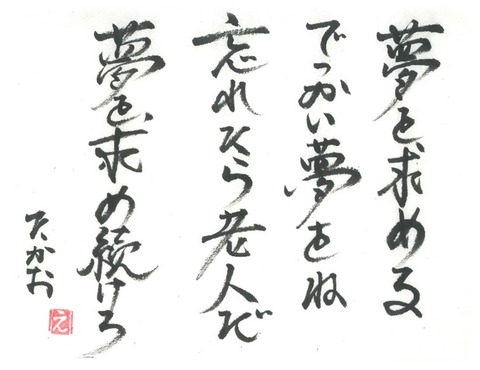 夢を求める
でっかい夢をね
忘れたら老人だ
夢を求め続けろ
たかお
え